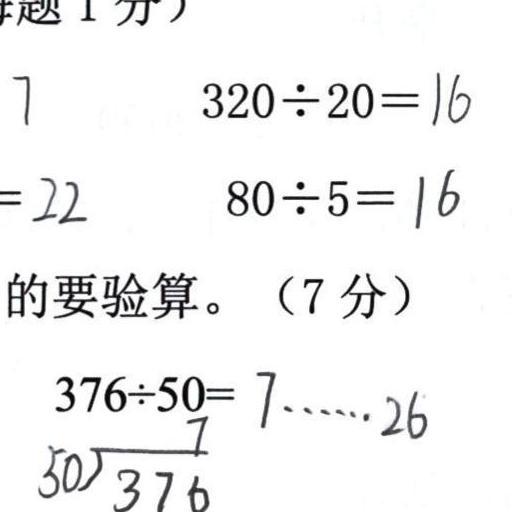 题 1 分）
7 320÷20=16
=22 80÷5=16
的要验算。（7 分）
376÷50=7……26
7
50)376